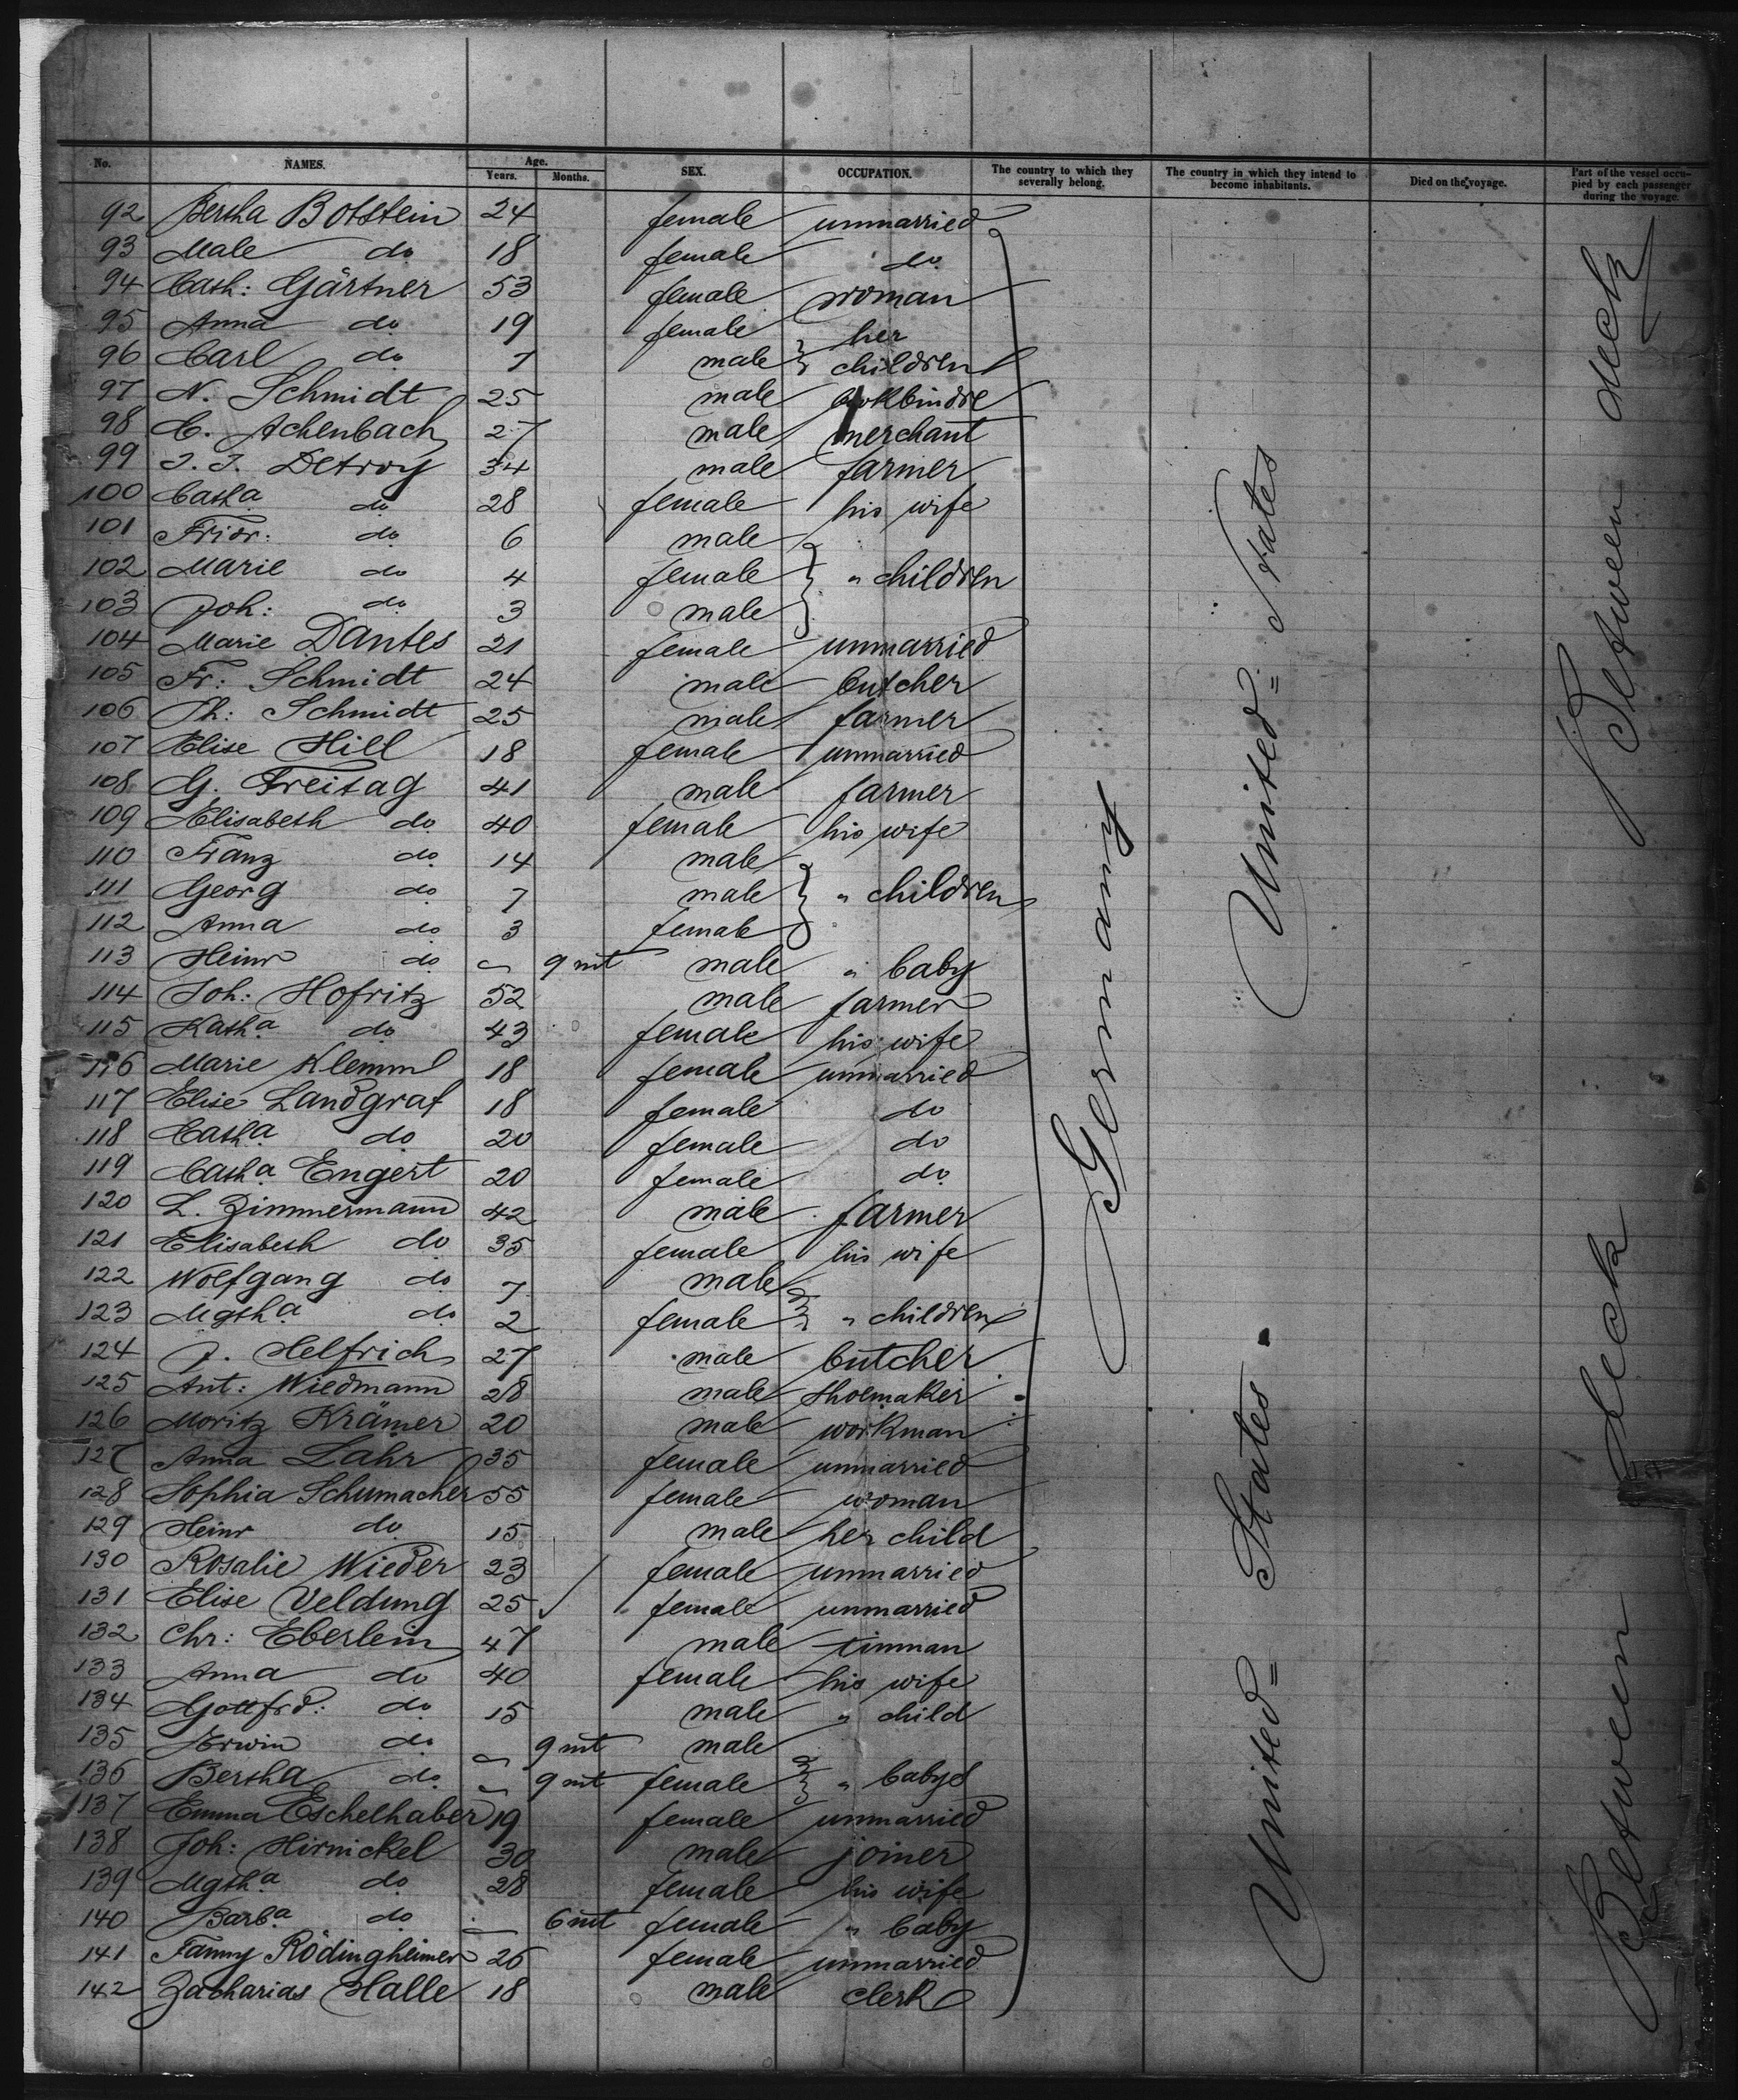 No. NAMES. Age. Years. Months. SEX. OCCUPATION. The country to which they severally belong. The country in which they intend to become inhabitants. Died on the voyage. Part of the vessel occupied by each passenger during the voyage.
92 Bertha Botstein 24 female unmarried
93 Male do 18 female do
94 Cath: Gärtner 53 female woman
95 Anna do 19 female her
96 Carl do 7 male children
97 N. Schmidt 25 male bookbindre
98 C. Achenbach 27 male merchant
99 J. J. Detroy 34 male farmer
100 Catha do 28 female his wife
101 Fridr: do 6 male
102 Marie do 4 female " children
103 Joh: do 3 male
104 Marie Dantes 21 female unmarried
105 Fr: Schmidt 24 male butcher
106 Ph: Schmidt 25 male farmer
107 Elise Hill 18 female unmarried
108 G. Freitag 41 male farmer
109 Elisabeth do 40 female his wife
110 Franz do 14 male
111 Georg do 7 male " children
112 Anna do 3 female
113 Heinr do 9 mt male " baby
114 Joh: Hofritz 52 male farmer
115 Katha do 43 female his wife
116 Marie Klemml 18 female unmarried
117 Elise Landgraf 18 female do
118 Catha do 20 female do
119 Catha Engert 20 female do
120 L. Zimmermann 42 male farmer
121 Elisabeth do 35 female his wife
122 Wolfgang do 7 male
123 Mgtha do 2 female " children
124 J. Helfrich 27 male butcher
125 Ant: Wiedmann 28 male shoemaker
126 Moritz Krämer 20 male workman
127 Anna Lahr 35 female unmarried
128 Sophia Schumacher 55 female woman
129 Heinr do 15 male her child
130 Rosalie Wieder 23 female unmarried
131 Elise Veldung 25 female unmarried
132 Chr: Eberlein 47 male tinman
133 Anna do 40 female his wife
134 Gottfrd: do 15 male " child
135 Erwin do 9 mt male
136 Bertha do 9 mt female " babys
137 Emma Eschelhaber 19 female unmarried
138 Joh: Hirnickel 30 male joiner
139 Mgtha do 28 female his wife
140 Barba do 6 mt female " baby
141 Fanny Rödingheimer 26 female unmarried
142 Zacharias Halle 18 male clerk
Germany
United= States
United= States
Between deck
Between deck